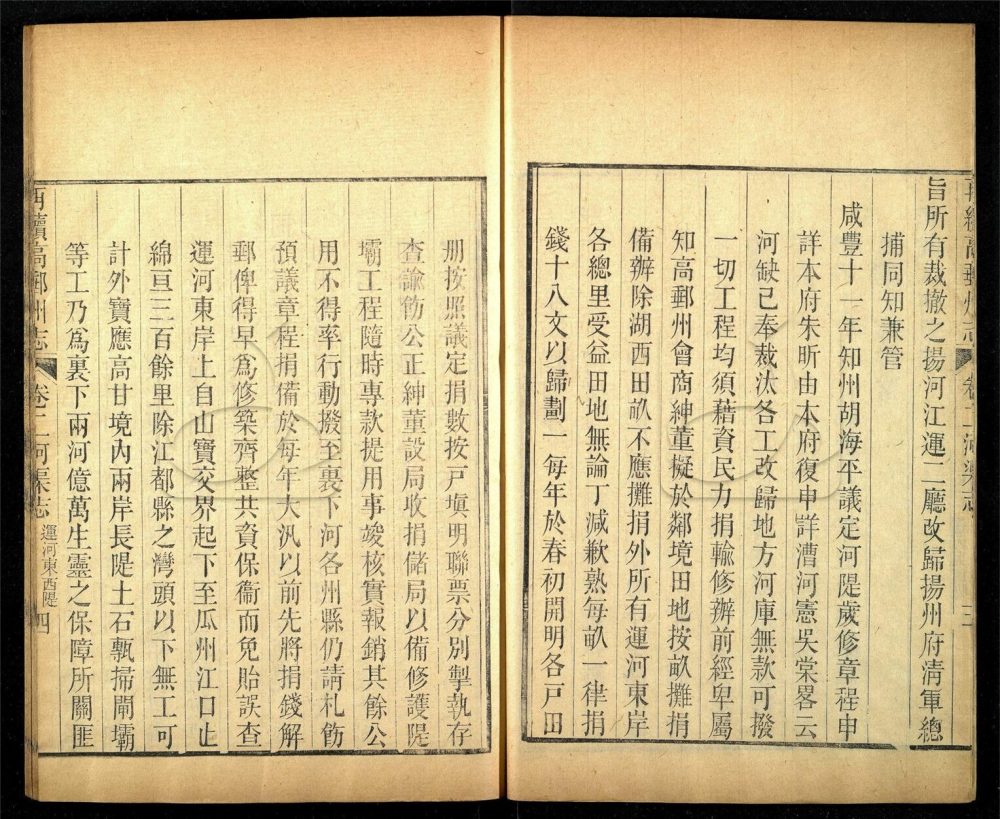 再續高郵州志 卷二河渠志 三
旨所有裁撤之揚河江運二廳改歸揚州府淸軍總
捕同知兼管
咸豐十一年知州胡海平議定河隄歲修章程申
詳本府朱昕由本府復申詳漕河憲吳棠畧云
河缺已奉裁汰各工改歸地方河庫無款可撥
一切工程均須藉資民力捐輸修辦前經卑屬
知高郵州會商紳董擬於鄰境田地按畝攤捐
備辦除湖西田畝不應攤捐外所有運河東岸
各總里受益田地無論丁減歉熟每畝一律捐
錢十八文以歸劃一每年於春初開明各戸田
册按照議定捐數按戸塡明聯票分別掣執存
查諭飭公正紳董設局收捐儲局以備修護隄
壩工程隨時專款提用事竣核實報銷其餘公
用不得率行動撥至裏下河各州縣仍請札飭
預議章程捐備於每年大汛以前先將捐錢解
郵俾得早爲修築齊整共資保衞而免貽誤查
運河東岸上自山寶交界起下至瓜州江口止
綿亘三百餘里除江都縣之灣頭以下無工可
計外寶應高甘境內兩岸長隄土石甎掃閘壩
等工乃爲裏下兩河億萬生靈之保障所關匪
再續高郵州志 卷二河渠志 運河東西隄 四